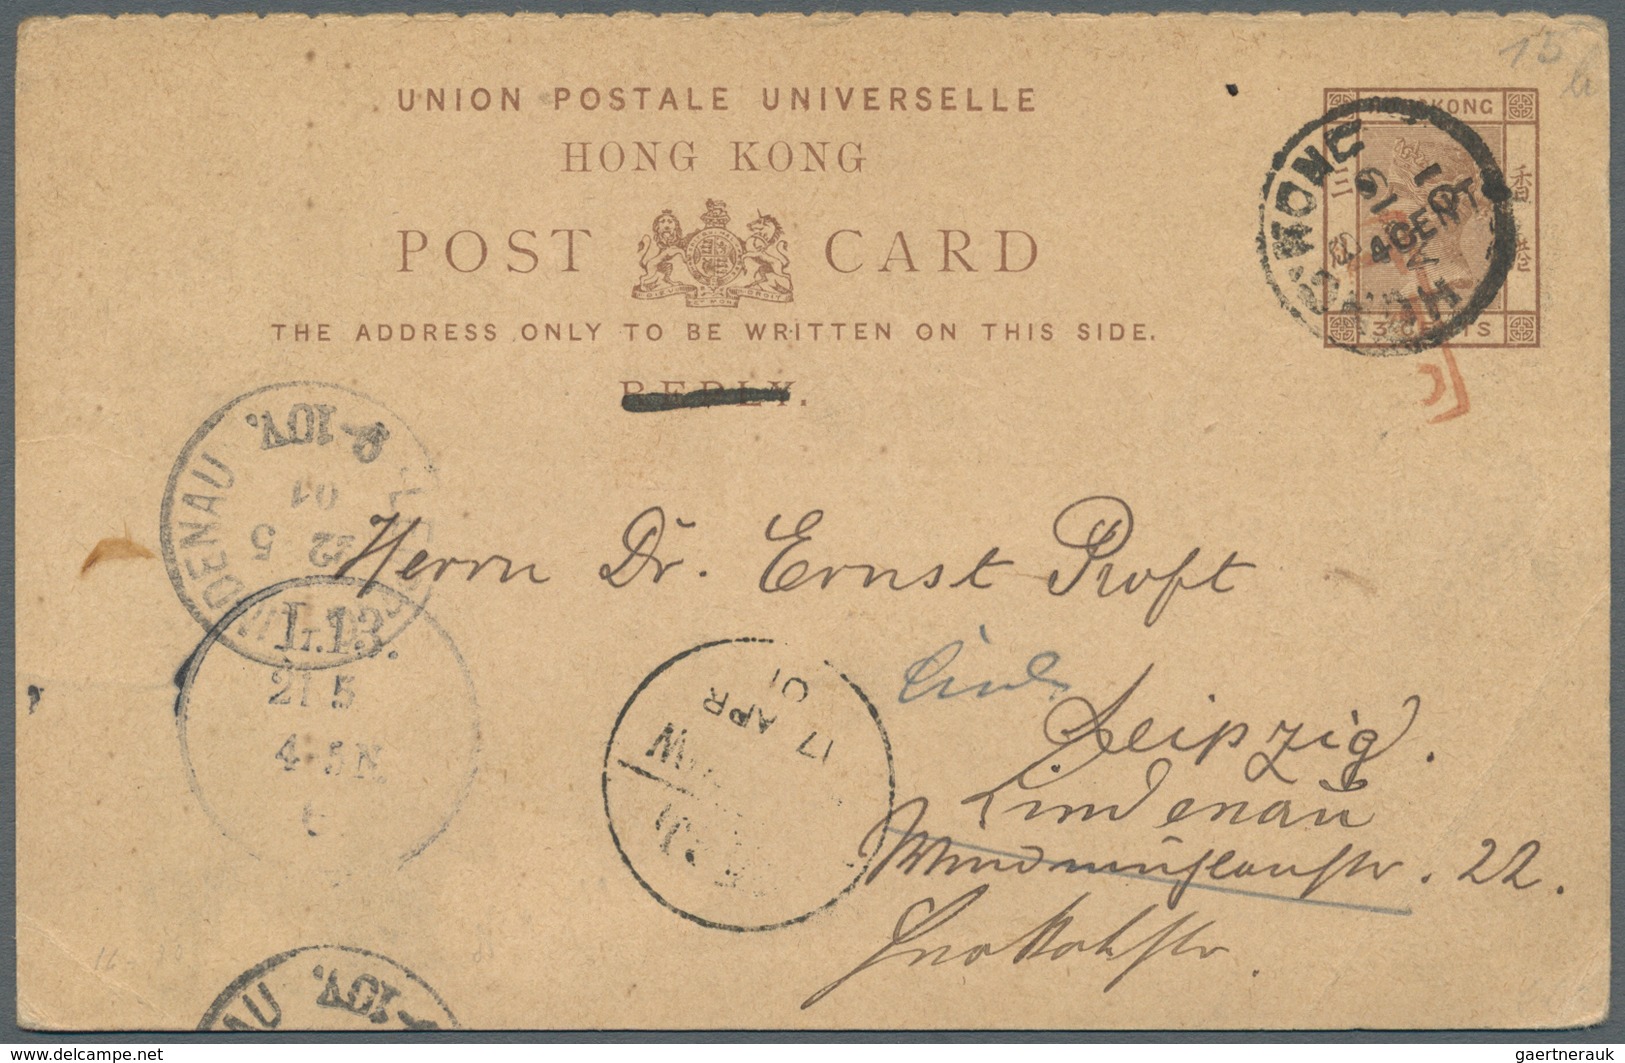 15
UNION POSTALE UNIVERSELLE
HONG KONG
POST CARD
DIEU ET MON DROIT
THE ADDRESS ONLY TO BE WRITTEN ON THIS SIDE.
REPLY.
HONG KONG
香港
三
4 CENTS
3 CENTS
LINDENAU
8-10V.
01
22 5
Herrn Dr. Ernst Proft
L.13.
21 5
4-5N.
17 APR
01
Leipzig.
Lindenau
Windmühlenstr. 22.
10V.
delcampe.net
gaertnerauk